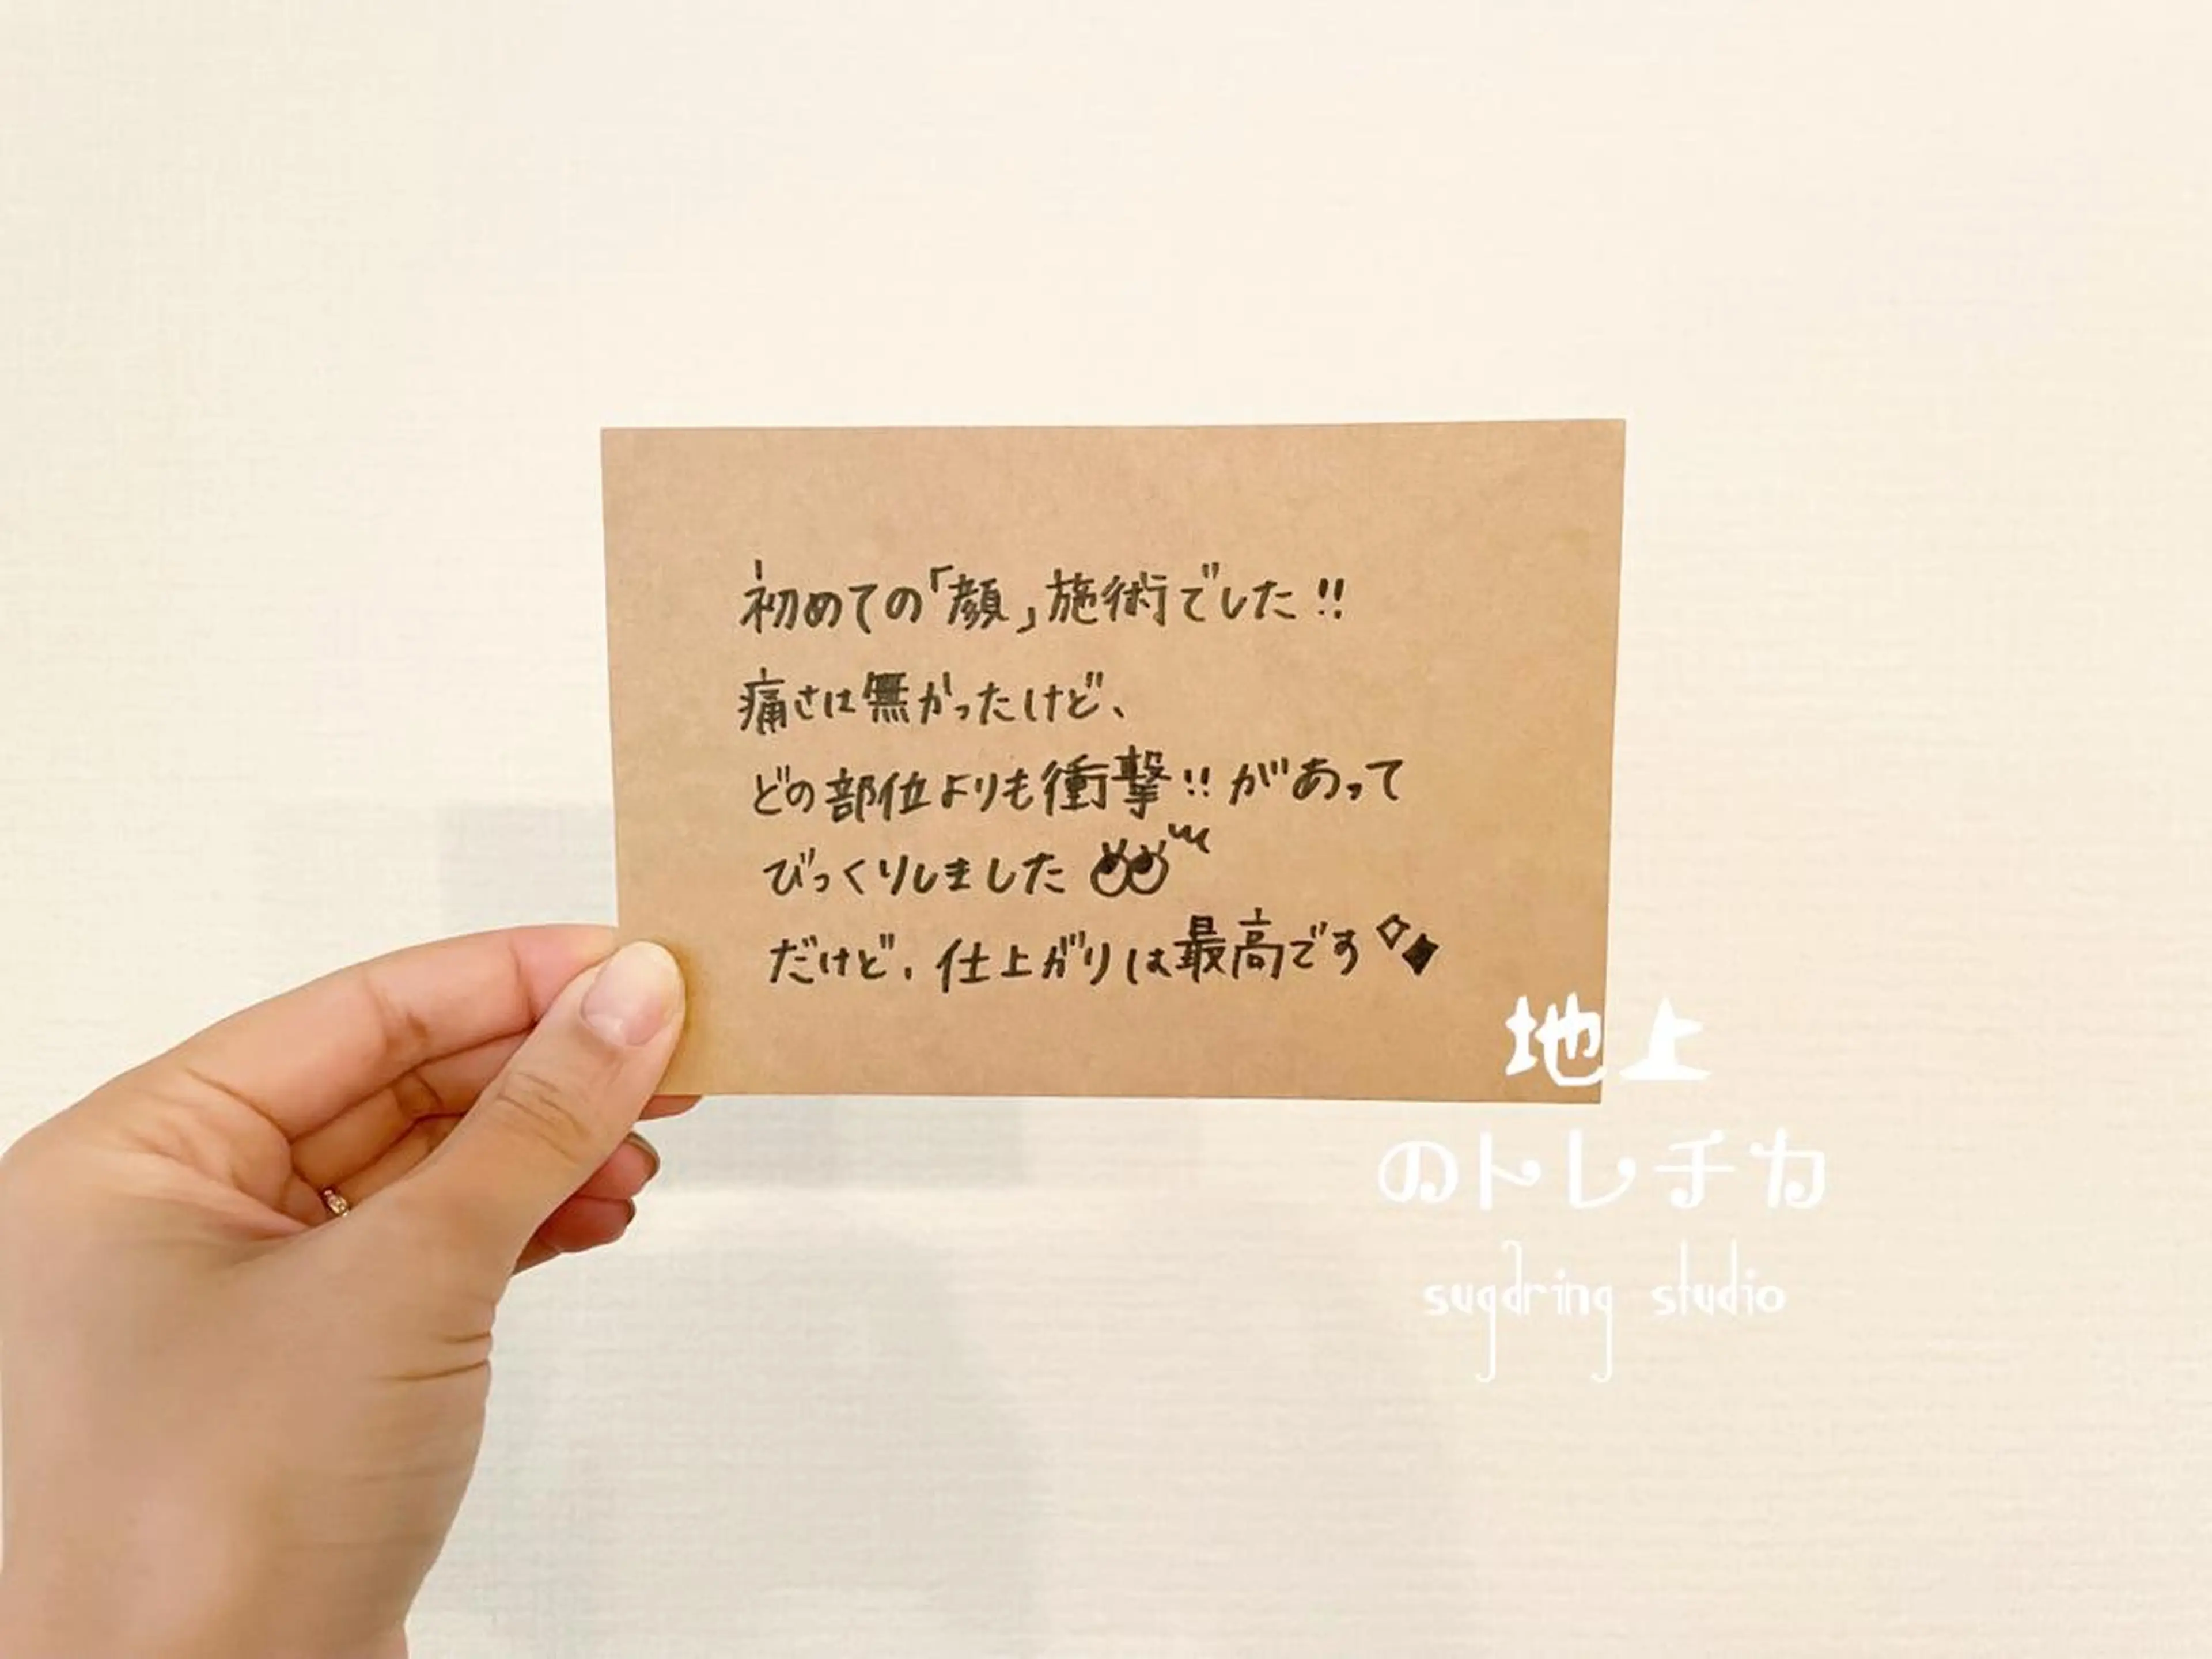 初めての「顔」施術でした!!
痛さは無かったけど、
どの部位よりも衝撃!!があって
びっくりしました
だけど、仕上がりは最高です
地上
のトレチカ
sugaring studio